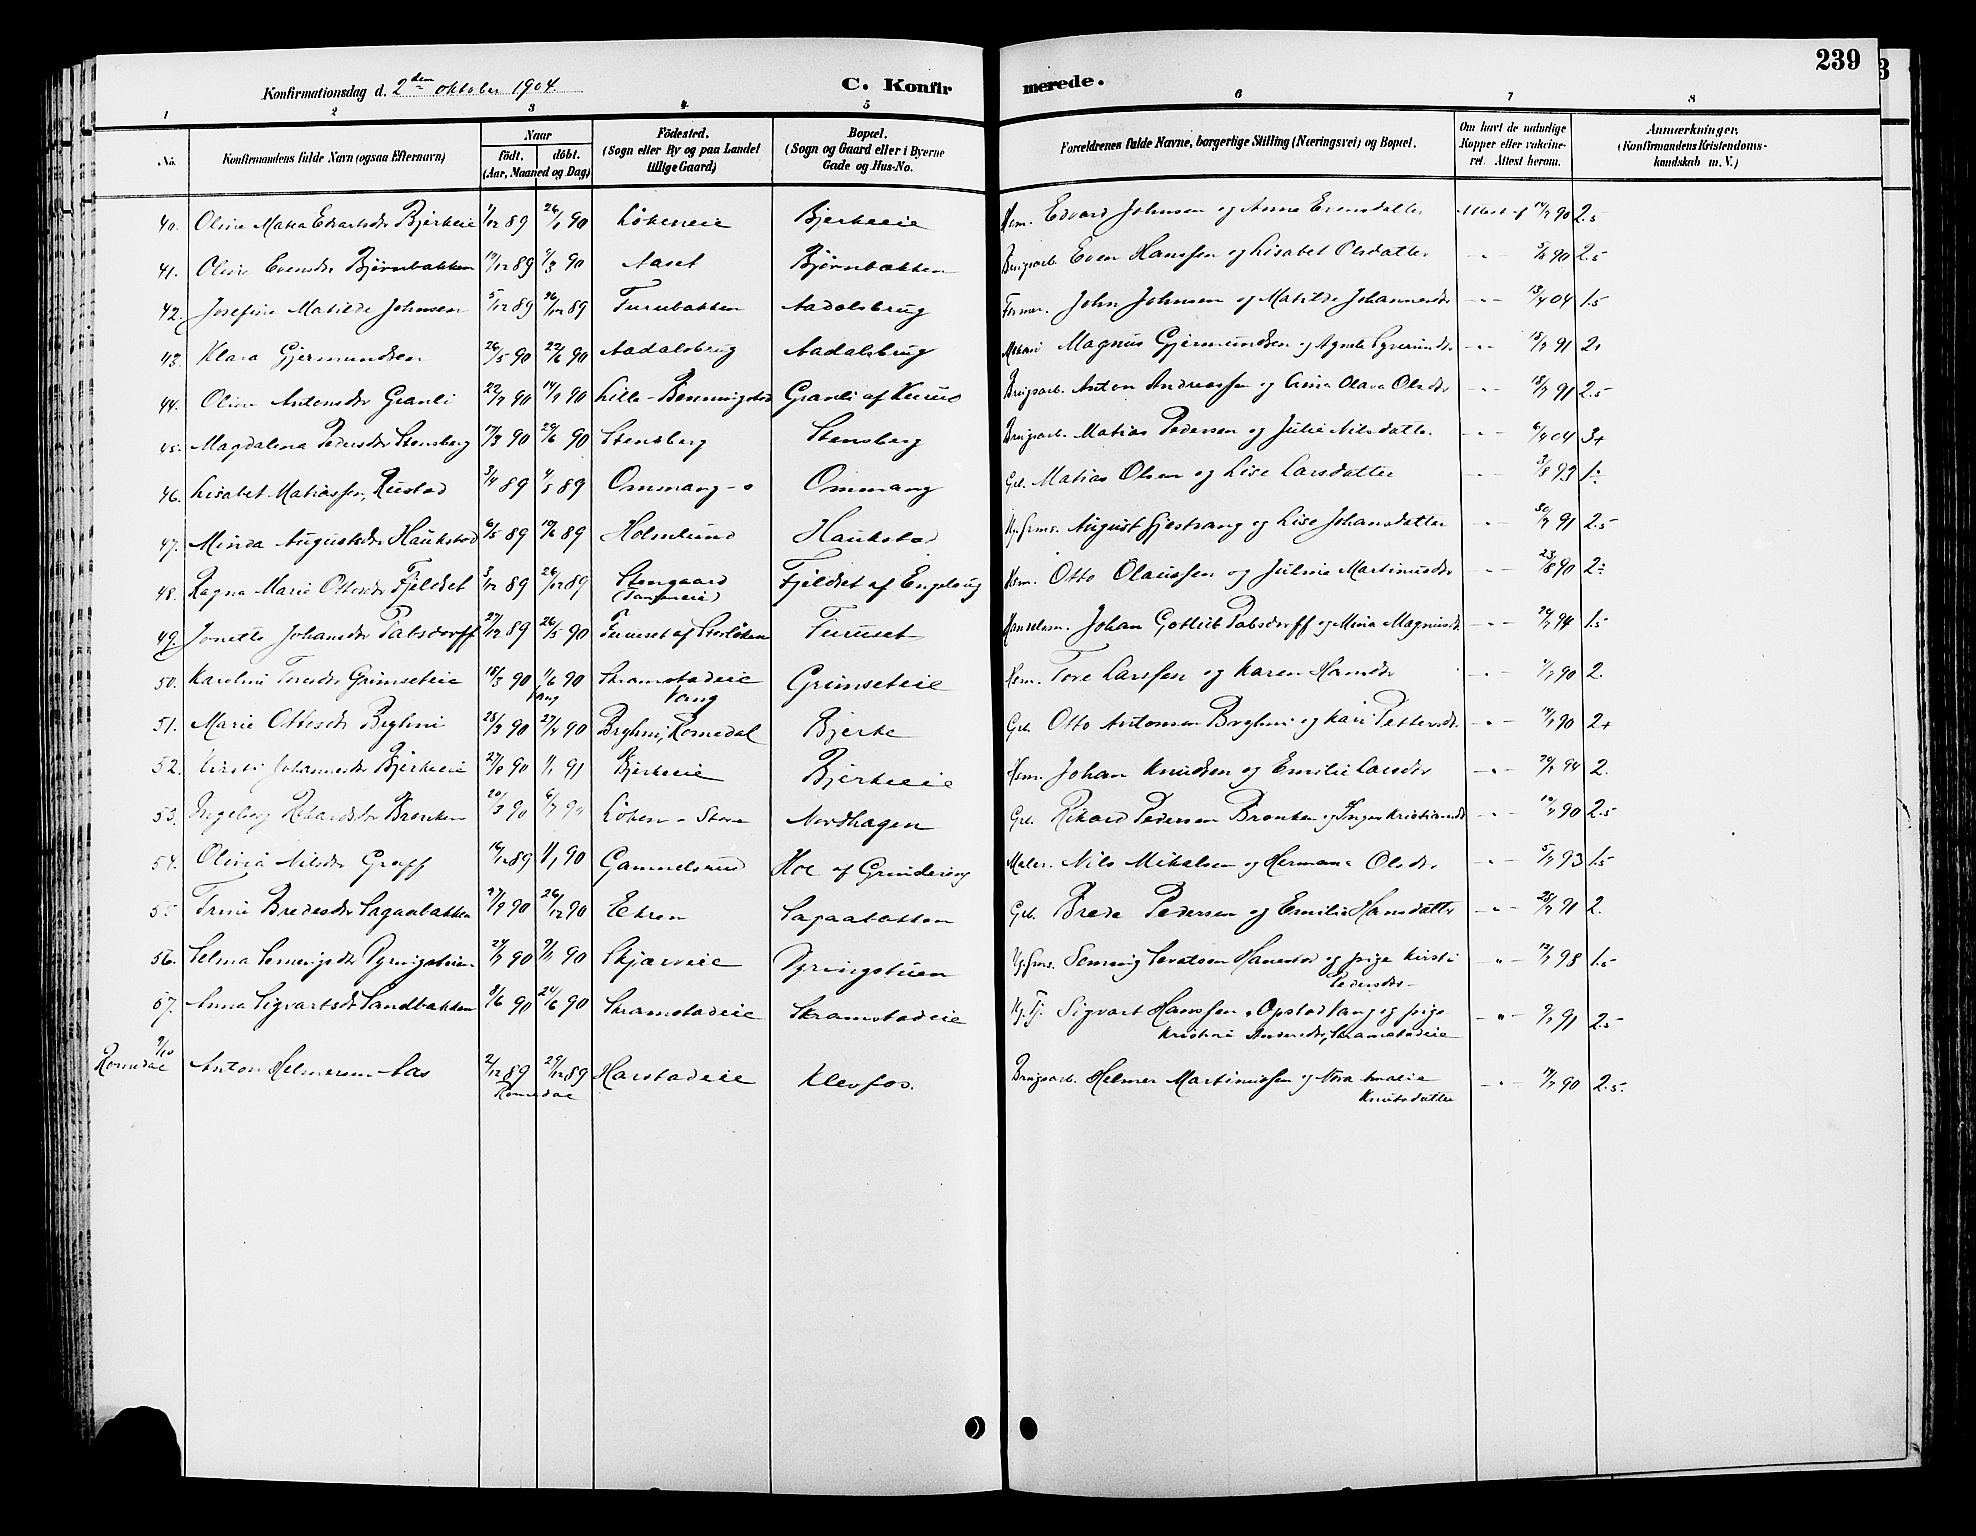 239
Konfirmationsdag d. 2den oktober 1904. C. Konfirmerede.
1 2 3 4 5 6 7 8
No. Konfirmandens fulde Navn (ogsaa Efternavn) Naar født. døbt. (Aar, Maaned og Dag) Fødested. (Sogn eller By og paa Landet tillige Gaard) Bopæl. (Sogn og Gaard eller i Byerne Gade og Hus-No. Forældrenes fulde Navne, borgerlige Stilling (Næringsvei) og Bopæl. Om havt de naturlige Kopper eller vaccineret. Attest herom. Anmærkninger. (Konfirmandens Kristendomskundskab m. V.)
40. Oline Matea Edvartsdr Bjerkeie 1/12 89 26/1 90 Løkeneie Bjerkeeie Hsm. Edvard Johnsen og Anne Evensdatter Attest af 14/7 90 2.5
41. Oline Evensdr Bjørnbakken 19/12 89 9/3 90 Aaset Bjørnbakken Brugsarb. Even Hanssen og Lisabet Olsdatter 5/8 90 2.5
42. Josefine Matilde Johnsen 5/12 89 26/12 89 Furubakken Aadalsbrug Former. John Johnsen og Matilde Johannesdr 13/4 04 1.5
43. Klara Gjermundsen 26/5 90 22/6 90 Aadalsbrug Aadalsbrug Magnus Gjermundsen og Agnete 18/7 91 2+
44. Oline Antonsdr Granli 22/7 90 14/9 90 Lille-Benningstad Granli af Kurud Brugsarb. Anton Andreassen og Olava Olsdr 18/7 91 2.5
45. Magdalena Pedersdr Stensberg 17/3 90 29/6 90 Stensberg Stensberg Brugsarb. Matias Pedersen og Julie Nilsdatter 6/4 04 3+
46. Lisabet Matiassen, Rustad 3/4 89 4/5 89 Ommang-ø Ommang Grb. Matias Olsen og Lise Larsdatter 3/8 93 1÷
47. Minda Augustsdr Haukstad 6/5 89 10/6 89 Holmlund Haukstad August Gjestvang og Lise Johansdatter 30/7 91 2.5
48. Ragna Marie Ottesdr Fjeldset 3/12 89 26/12 89 Stengaard Fjeldset af Engelaug Hsm. Otto Olaussen og Juline Martinusdr 23/8 90 2÷
49. Jonette Johansdr Patsdorff 27/12 89 26/5 90 Furuset af Storløken Furuset Handelsm. Johan Gottlieb Patsdorff og Mina Magnusdr 24/7 94 1.5
50. Karoline Toresdr Grimseteie 18/3 90 1/6 90 Vang Skramstadeie Vang Grimseteie Hsm. Tore Larssen og Karen Hansdr 11/7 90 2.
51. Marie Ottesdr Bryhni 25/3 90 27/4 90 Bryhni, Romedal Bjerke Grb. Otto Antonsen Bryhni og Kari Pettersdr 14/7 90 2+
52. Kirsti Johannesdr Bjerkeeie 27/8 90 1/1 91 Bjerkeeie Bjerkeeie Hsm. Johan Knudsen og Emilie Larsdr 24/7 94 2.
53. Ingeborg Rikardsdr Brenken 20/3 90 6/7 90 Løken - Store Nordhagen Grb. Rikard Pedersen Brenken og Inger Kristiansdr 10/7 90 2.5
54. Olivia Nilsdr Graff 14/12 89 1/1 90 Gammelsrud Hoel af Grindereng Maler. Nils Mikalsen og Hermana Olsdr 5/7 93 1.5
55 Trine Bredesdr Sagaabakken 27/9 90 26/12 90 Ekren Sagaabakken Grb. Brede Pedersen og Emilie Hansdatter 25/7 91 2.
56. Selma Semmingsdr Pyringstuen 24/7 90 9/11 90 Skjærveie Pyringstuen Ug.grms. Semmig Sevatsen Hanestad og pige Kirsti Pedersdr 12/7 98 1.5
57. Anna Sigvartsdr Sandbakken 8/6 90 24/6 90 Skramstadeie Skramstadeie Sigvart Hanssen, Opstad Vang og pige Kristine Andersdr, Skramstadeie 9/7 91 2.5
9/10 Romedal Anton Helmersen Aas 2/12 89 29/12 89 Romedal Harstadeie Klevfos. Brugsarb. Helmer Martinussen og Nora Amalie Knutsdatter 14/7 90 2.5